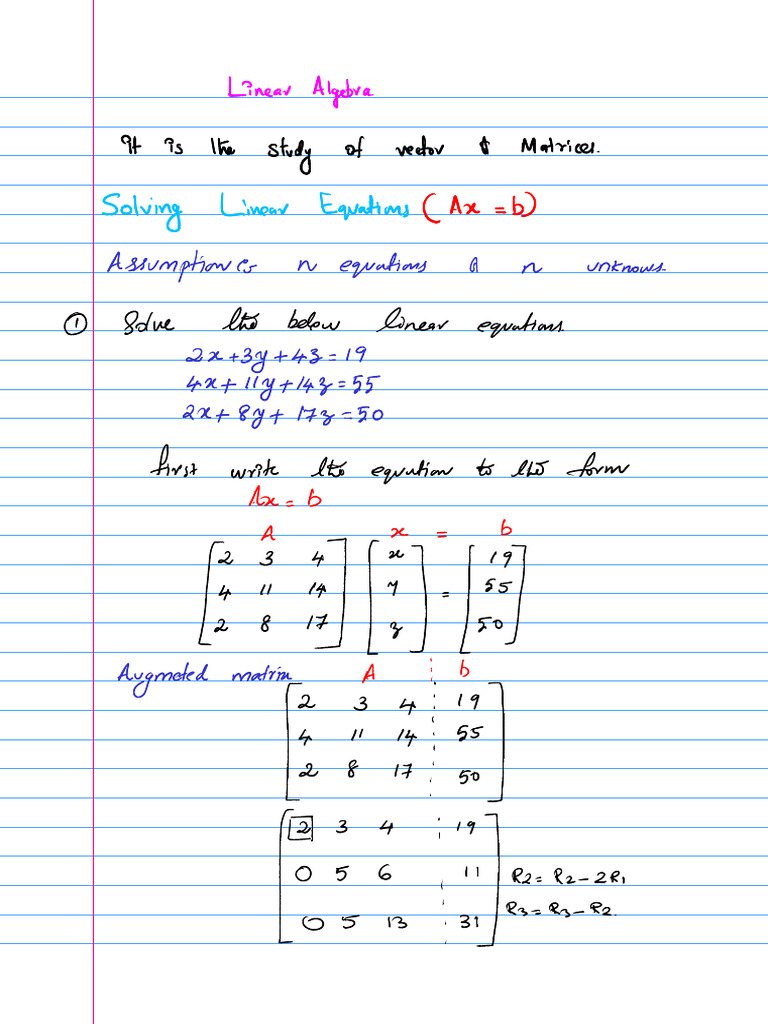 Linear Algebra
It is the study of vector & Matrices.
Solving Linear Equations (Ax = b)
Assumption is n equations & n unknows.
① Solve the below linear equations.
2x+3y+4z=19
4x+11y+14z=55
2x+8y+17z=50
first write the equation to the form
Ax = b
A x = b
2 3 4 x 19
4 11 14 y = 55
2 8 17 z 50
Augmeted matrix A b
2 3 4 19
4 11 14 55
2 8 17 50
2 3 4 19
0 5 6 11 R2 = R2 - 2R1
0 5 13 31 R3 = R3 - R2.